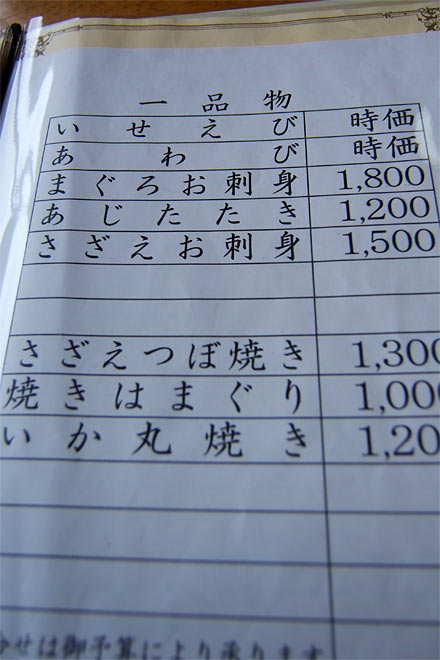 一品物
いせえび 時価
あわび 時価
まぐろお刺身 1,800
あじたたき 1,200
さざえお刺身 1,500
さざえつぼ焼き 1,300
焼きはまぐり 1,000
いか丸焼き 1,20
せは御予算により承ります